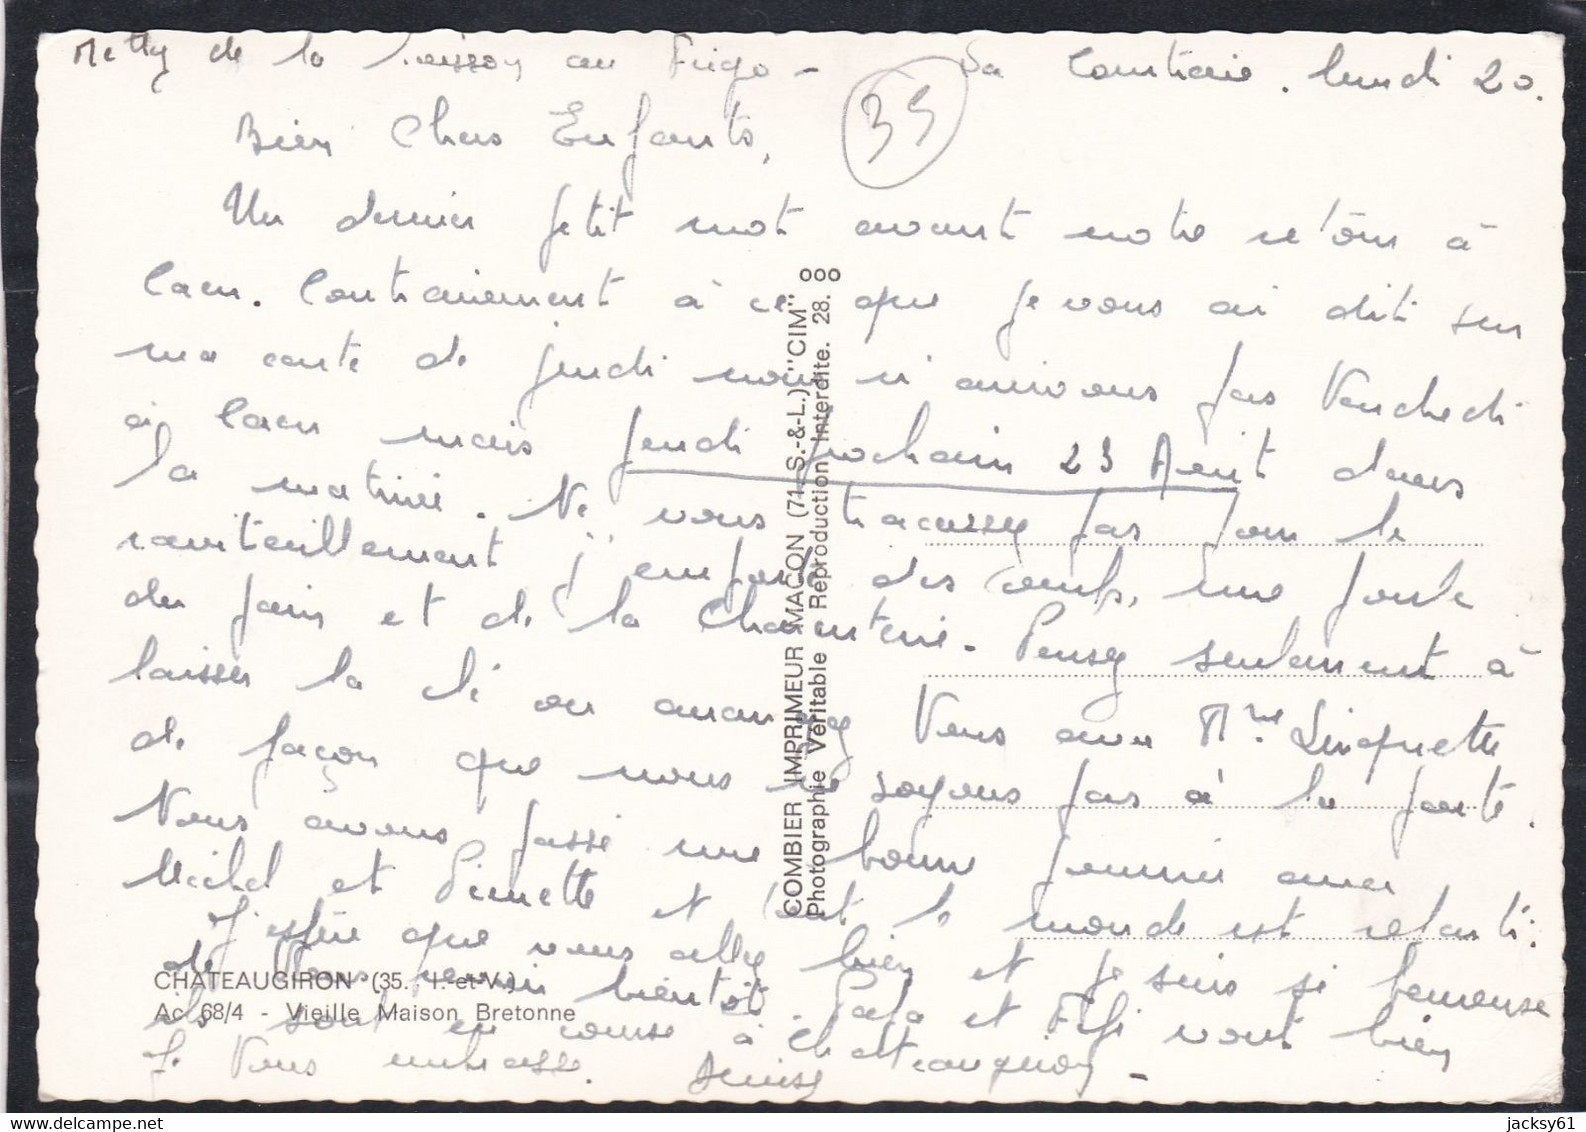 Mettez de la boisson au Frigo - La Courtrie. lundi 20.
35
Bien Chers Enfants,
Un dernier petit mot avant notre retour à
Caen. Contrairement à ce que je vous ai dit sur
ma carte de jeudi nous n'arrivons pas Vendredi
à Caen mais jeudi prochain 23 Aout dans
la matinée. Ne vous tracassez pas pour le
ravitaillement j'emporte des oeufs, une poule
du pain et de la Charcuterie. Pensez seulement à
laisser la clé ou arrangez Vous avec Mme Linquette
de façon que nous ne soyons pas à la porte.
Nous avons passé une bonne journée avec
Michel et Pierrette et tout le monde est reparti.
J'espère que vous allez bien et je suis si heureuse
de Vous revoir bientôt. Papa et Fifi vont bien
ils sont en course à Chateaugiron -
Je Vous embrasse. Denise
COMBIER IMPRIMEUR MACON (71 S.-&-L.) "CIM"
Photographie Véritable Reproduction Interdite. 28.
CHATEAUGIRON (35. - I.-et-V.)
Ac 68/4 - Vieille Maison Bretonne
jacksy61